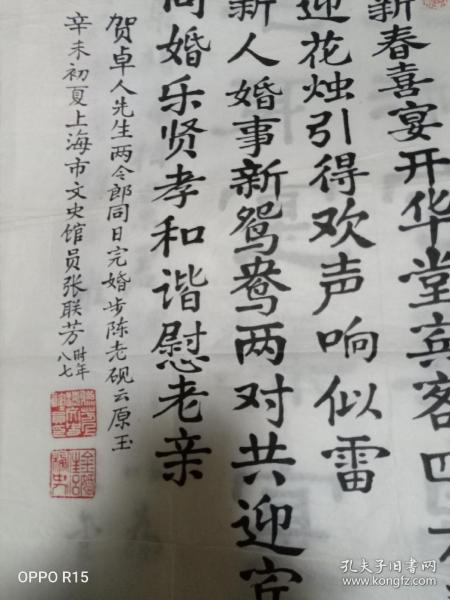 新春喜宴开华堂宾客四
迎花烛引得欢声响似雷
新人婚事新鸳鸯两对共迎宾
同婚乐贤孝和谐慰老亲
贺卓人先生两令郎同日完婚步陈老砚云原玉
辛未初夏上海市文史馆员张联芳时年八七
OPPO R15
孔夫子旧书网
www.kongfz.com